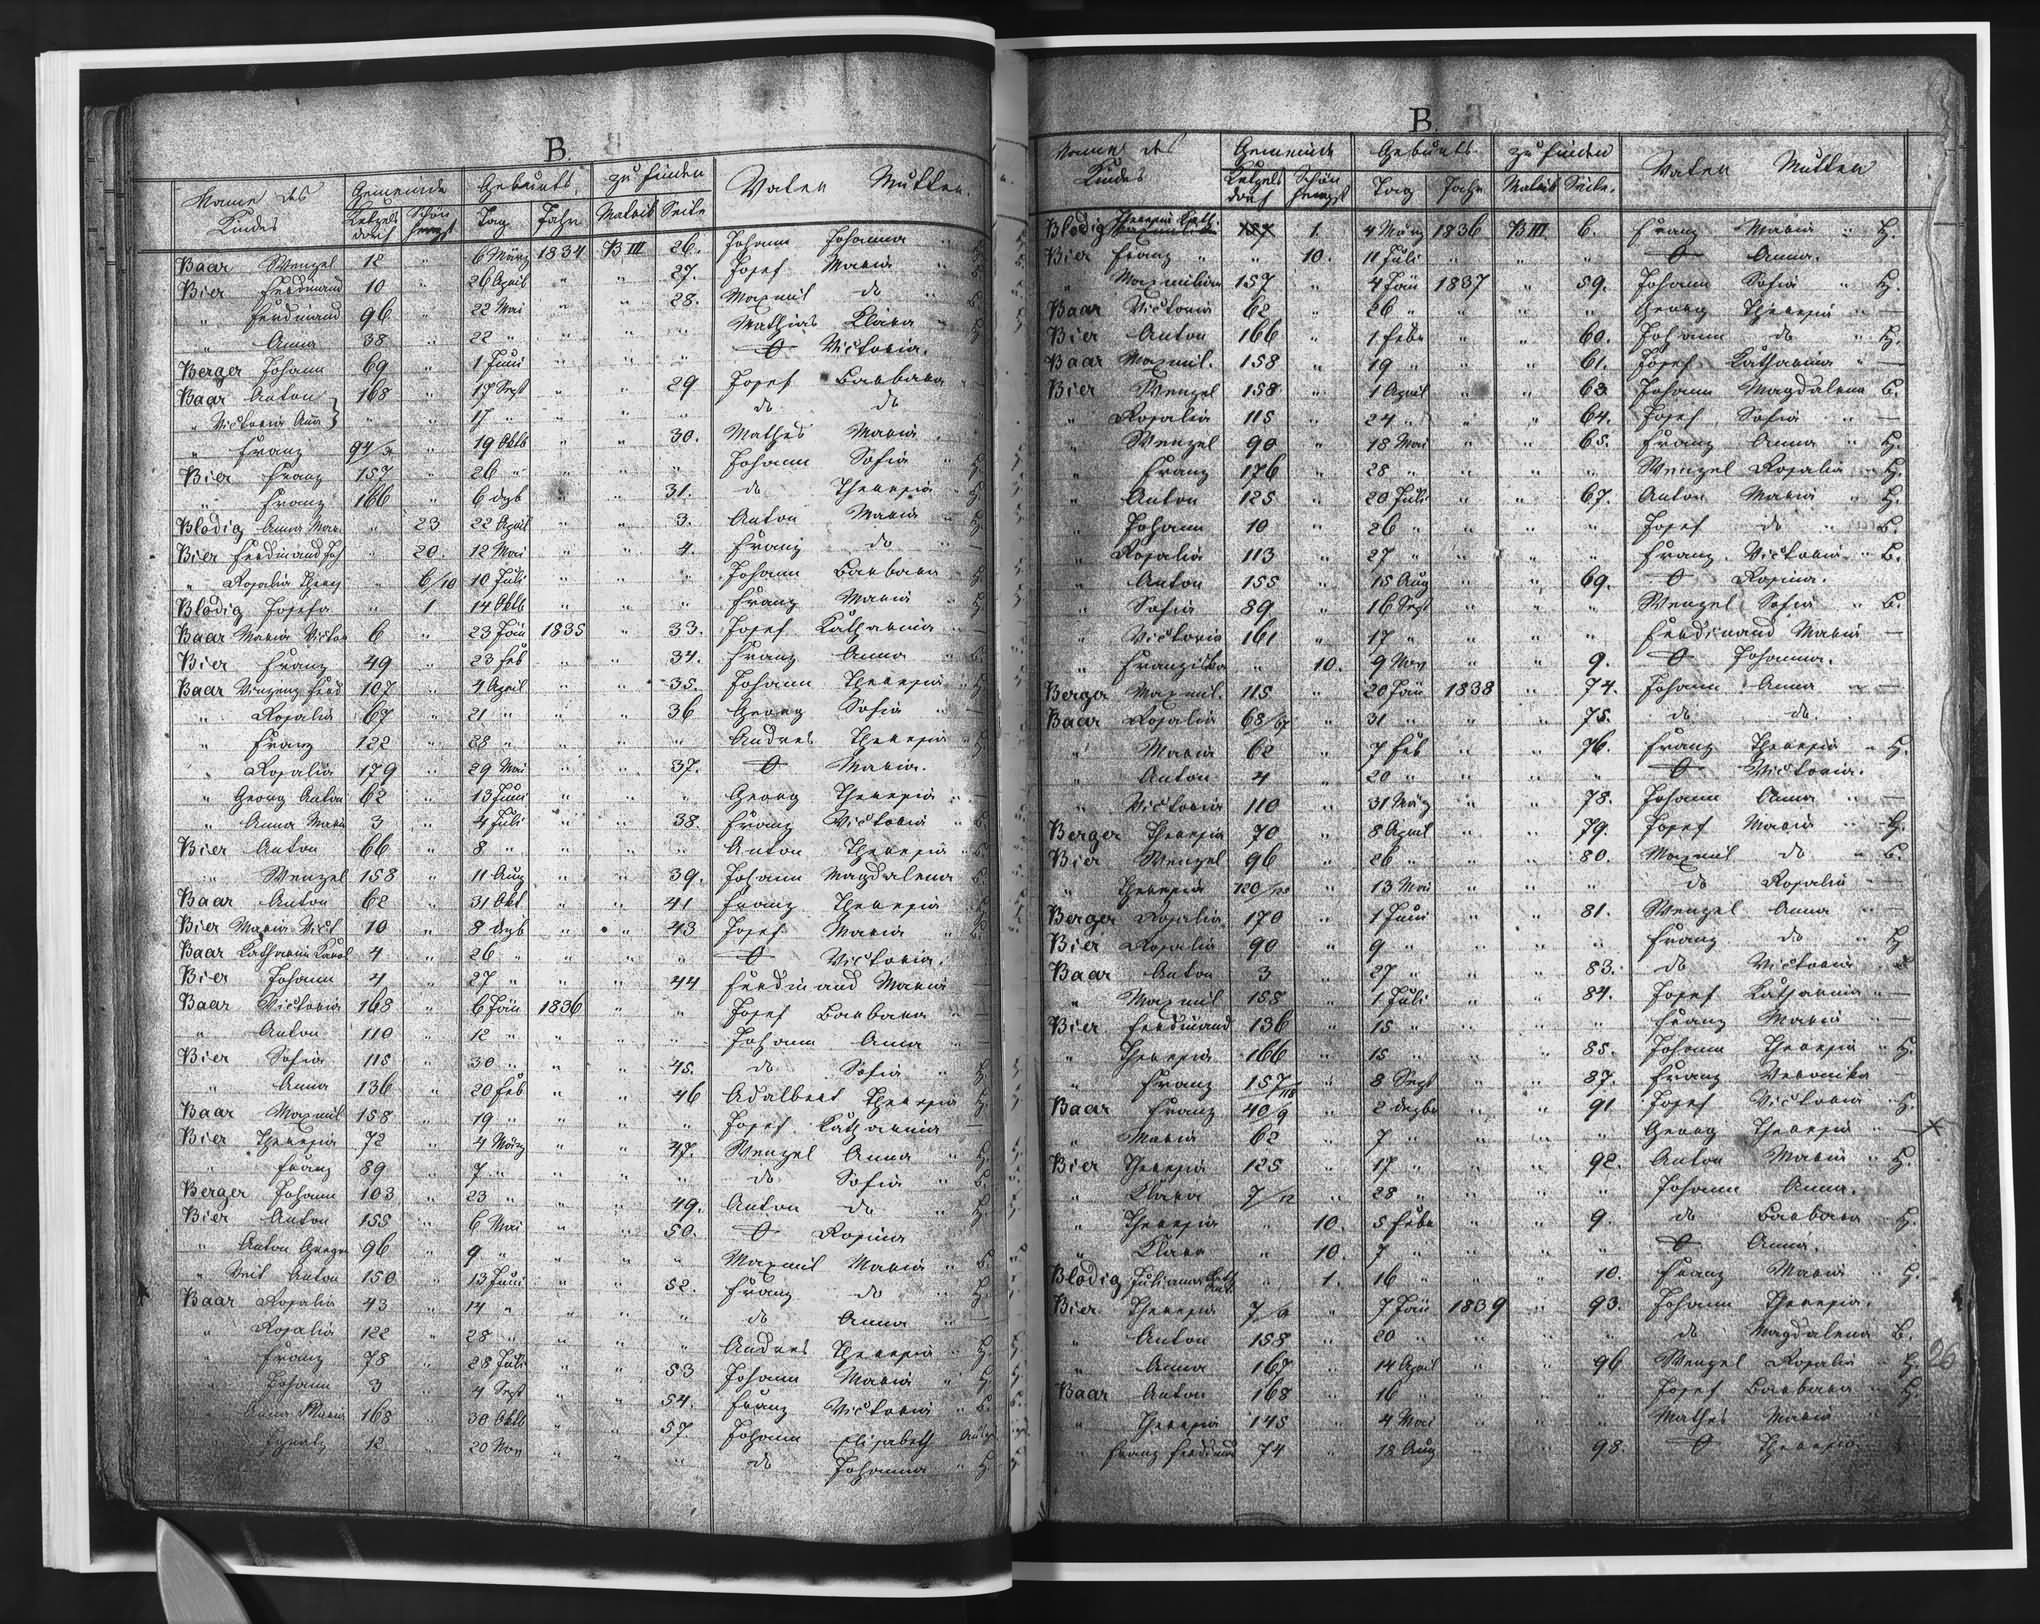 B.
Name des Kindes Gemeinde Geburts zu finden Vater Mutter.
Ketzelsdorf Schönhengst Tag Jahr Matrik Seite
Baar Wenzel 12 " 6 März 1834 B III 26. Johann Johanna " H
Bier Ferdinand 10 " 26 April " " 27. Josef Maria " B
" Ferdinand 96 " 22 Mai " " 28. Maxmil do " B.
" Anna 38 " 22 " " " " Mathias Klara " H
Berger Johann 69 " 1 Juni " " " O Victoria.
Baar Anton 168 " 17 Sept " " 29 Josef Barbara " —
" Victoria Anna " " 17 " " " " do do
" Franz 94/ " 19 Oktb " " 30. Mathes Maria "
Bier Franz 157 " 26 " " " " Johann Sofia " H
" Franz 166 " 6 dezb " " 31. do Theresia " H
Blodig Anna Mar. " 23 22 April " " 3. Anton Maria " H
Bier Ferdinand Joh " 20. 12 Mai " " 4. Franz do "
" Rosalia Theres " 6/10 10 Juli " " " Johann Barbara H
Blodig Josefa " 1 14 Oktb " " " Franz Maria " H
Baar Maria Victor 6 " 23 Jän 1835 " 33. Josef Katharina "
Bier Franz 49 " 23 Feb " " 34. Franz Anna " B.
Baar Vinzenz Ferd 107 " 4 April " " 35. Johann Theresia " H
" Rosalia 67 " 21 " " " 36 Georg Sofia " —
" Franz 122 " 28 " " " " Andres Theresia " H
" Rosalia 179 " 29 Mai " " 37. O Maria.
" Georg Anton 62 " 13 Juni " " " Georg Theresia "
" Anna Maria 3 " 4 Juli " " 38. Franz Victoria " B.
Bier Anton 66 " 8 " " " " Anton Theresia " B.
" Wenzel 158 " 11 Aug " " 39. Johann Magdalena B.
Baar Anton 62 " 31 Okt " " 41 Franz Theresia " H
Bier Maria Vict 10 " 8 dezb " " 43 Josef Maria " B.
Baar Katharin Karol 4 " 26 " " " " O Victoria.
Bier Johann 4 " 27 " " " 44 Ferdinand Maria —
Baar Victoria 168 " 6 Jän 1836 " " Josef Barbara " —
" Anton 110 " 12 " " " " Johann Anna " —
Bier Sofia 115 " 30 " " " 45. do Sofia " H
" Anna 136 " 20 Feb " " 46 Adalbert Theresia H.
Baar Maxmil 158 " 19 " " " " Josef Katharina —
Bier Theresia 72 " 4 März " " 47. Wenzel Anna " H
" Franz 89 " 7 " " " " do Sofia " B.
Berger Johann 103 " 23 " " " 49. Anton do " H
Bier Anton 155 " 6 Mai " " 50. O Rosina
" Anton Gregor 96 " 9 " " " " Maxmil Maria " B.
" Veit Anton 150 " 13 Juni " " 52. Franz do " H
Baar Rosalia 43 " 14 " " " " do Anna " —
" Rosalia 122 " 28 " " " " Andres Theresia " H
" Franz 78 " 28 Juli " " 53 Johann Maria " H
" Johann 3 " 4 Sept " " 54. Franz Victoria " B.
" Anna Maria 168 " 30 Oktb " " 57. Johann Elisabeth
" Ignatz 12 " 20 Nov " " " do Johanna " H.
B
Name des Kindes Gemeinde Geburts zu finden Vater Mutter
Ketzelsdorf Schönhengst Tag Jahr Matrik Seite.
Blodig Theresia Kath. 1. 4 März 1836 B III. 6. Franz Maria " H.
Bier Franz " " 10. 11 Juli " " " O Anna.
" Maxmilian 157 " 4 Jän 1837 " 59. Johann Sofia " H.
Baar Victoria 62 " 26 " " " " Georg Theresia " —
Bier Anton 166 " 1 Febr " " 60. Johann do " H.
Baar Maxmil. 158 " 19 " " " 61. Josef Katharina " —
Bier Wenzel 158 " 1 April " " 63. Johann Magdalena B.
" Rosalia 115 " 24 " " " 64. Josef Sofia " —
" Wenzel 90 " 18 Mai " " 65. Franz Anna " H
" Franz 176 " 28 " " " " Wenzel Rosalia " H.
" Anton 125 " 20 Juli " " 67. Anton Maria " H.
" Johann 10 " 26 " " " " Josef do " B.
" Rosalia 113 " 27 " " " " Franz Victoria " B.
" Anton 155 " 15 Aug " " 69. O Rosina.
" Sofia 89 " 16 Sept " " " Wenzel Sofia " B.
" Victoria 161 " 17 " " " " Ferdinand Maria —
" Franziska " 10. 9 Nov " " 9. O Johanna.
Berger Maxmil. 115 " 20 Jän 1838 " 74. Johann Anna " —
Baar Rosalia 68/67 " 31 " " " 75. do do.
" Maria 62 " 7 Feb " " 76. Franz Theresia " H.
" Anton 4 " 20 " " " " O Victoria.
" Victoria 110 " 31 März " " 78. Johann Anna " —
Berger Theresia 70 " 8 April " " 79. Josef Maria " H.
Bier Wenzel 96 " 26 " " " 80. Maxmil do " B.
" Theresia 120/ " 13 Mai " " " do Rosalia —
Berger Rosalia 170 " 1 Juni " " 81. Wenzel Anna " —
Bier Rosalia 90 " 9 " " " " Franz do " H
Baar Anton 3 " 27 " " " 83. do Victoria "
" Maxmil 158 " 1 Juli " " 84. Josef Katharina " —
Bier Ferdinand 136 " 15 " " " " Franz Maria " —
" Theresia 166 " 15 " " " 85. Johann Theresia " H.
" Franz 157/118 " 8 Sept " " 87. Franz Veronika —
Baar Franz 40/9 " 2 dezbr " " 91 Josef Victoria " H.
" Maria 62 " 7 " " " " Georg Theresia " — X
Bier Theresia 125 " 17 " " " 92. Anton Maria " H.
" Klara 7/12 " 28 " " " " Johann Anna.
" Theresia " 10. 5 Febr " " 9. do Barbara H.
" Klara " 10. 7 " " " " O Anna.
Blodig Juliana Kath " 1. 16 " " " 10. Franz Maria " H.
Bier Theresia 7/6 " 7 Jän 1839 " 93. Johann Theresia.
" Anton 158 " 20 " " " " do Magdalena B.
" Anna 167 " 14 April " " 96 Wenzel Rosalia " H. 26
Baar Anton 168 " 16 " " " " Josef Barbara " H.
" Theresia 145 " 4 Mai " " " Mathes Maria
" Franz Ferdinand 74 " 18 Aug " " 98. O Theresia